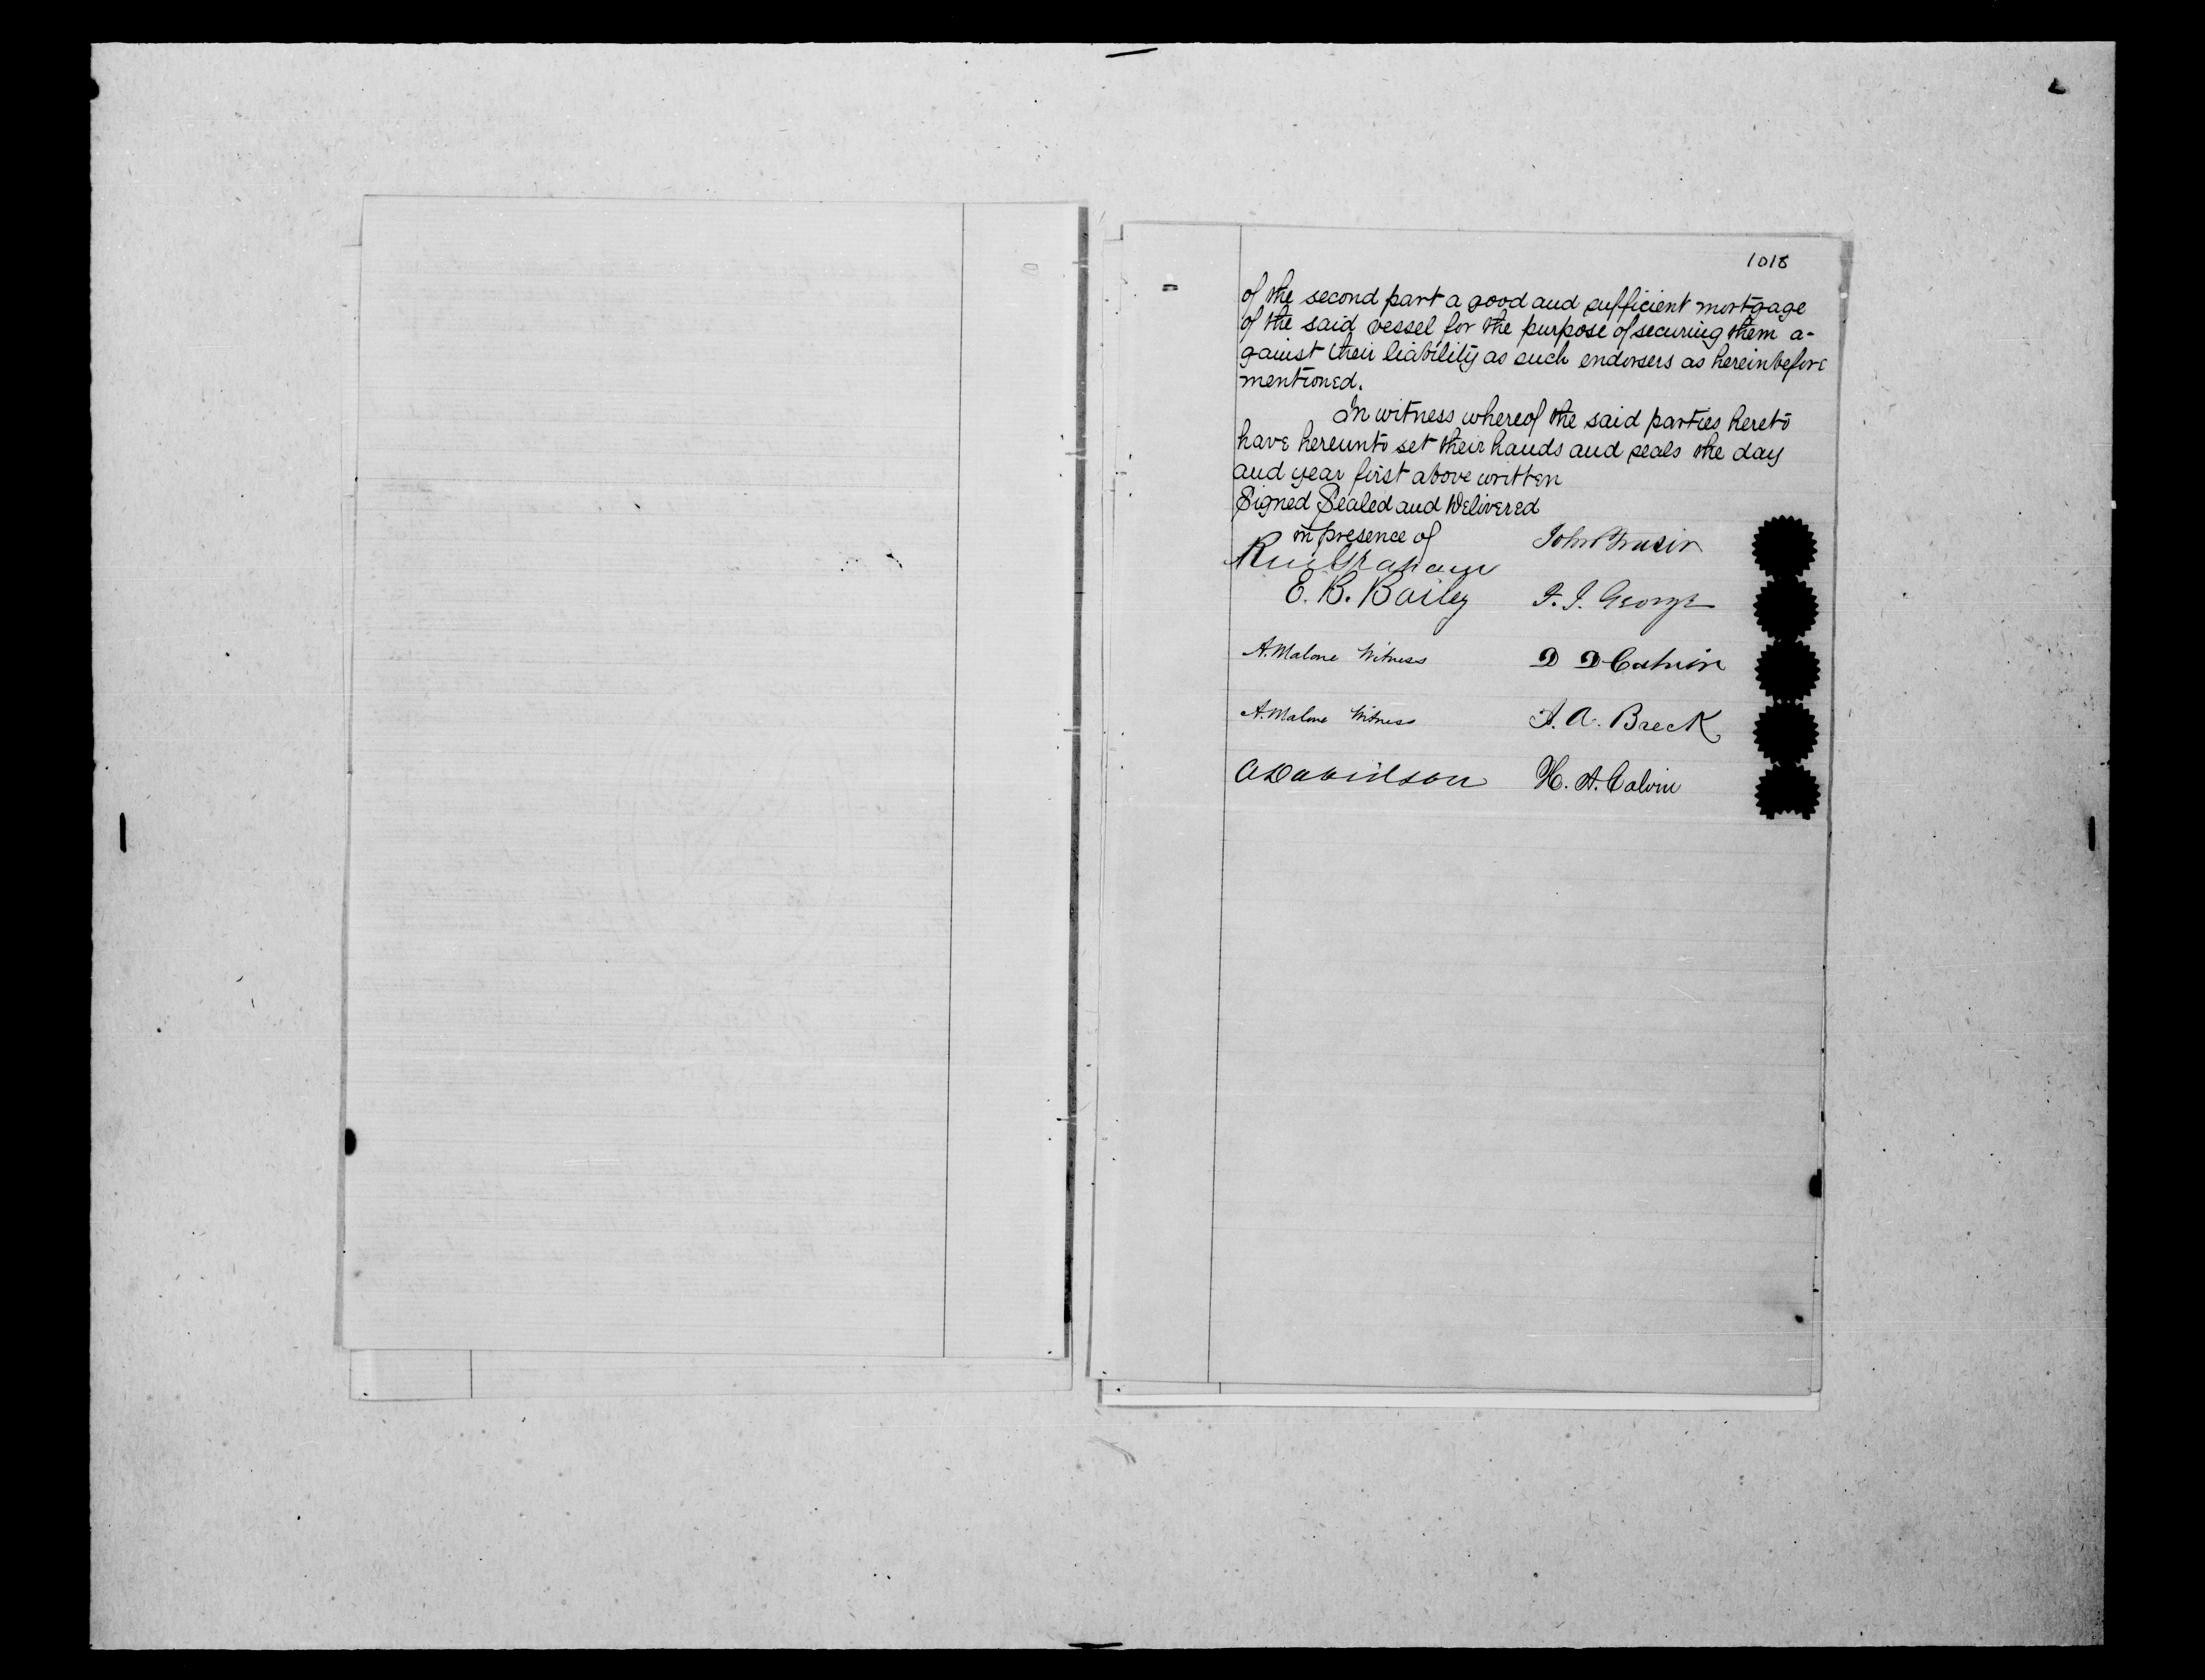 1018
of the second part a good and sufficient mortgage
of the said vessel for the purpose of securing them a-
gainst their liability as such endorsers as hereinbefore
mentioned.
In witness whereof the said parties hereto
have hereunto set their hands and seals the day
and year first above written
Signed Sealed and Delivered
in presence of
John
Graham
E. B. Bailey
F. J. George
A. Malone Witness
D D Calvin
A. Malone Witness
I. A. Breck
A Davidson
H. A. Calvin